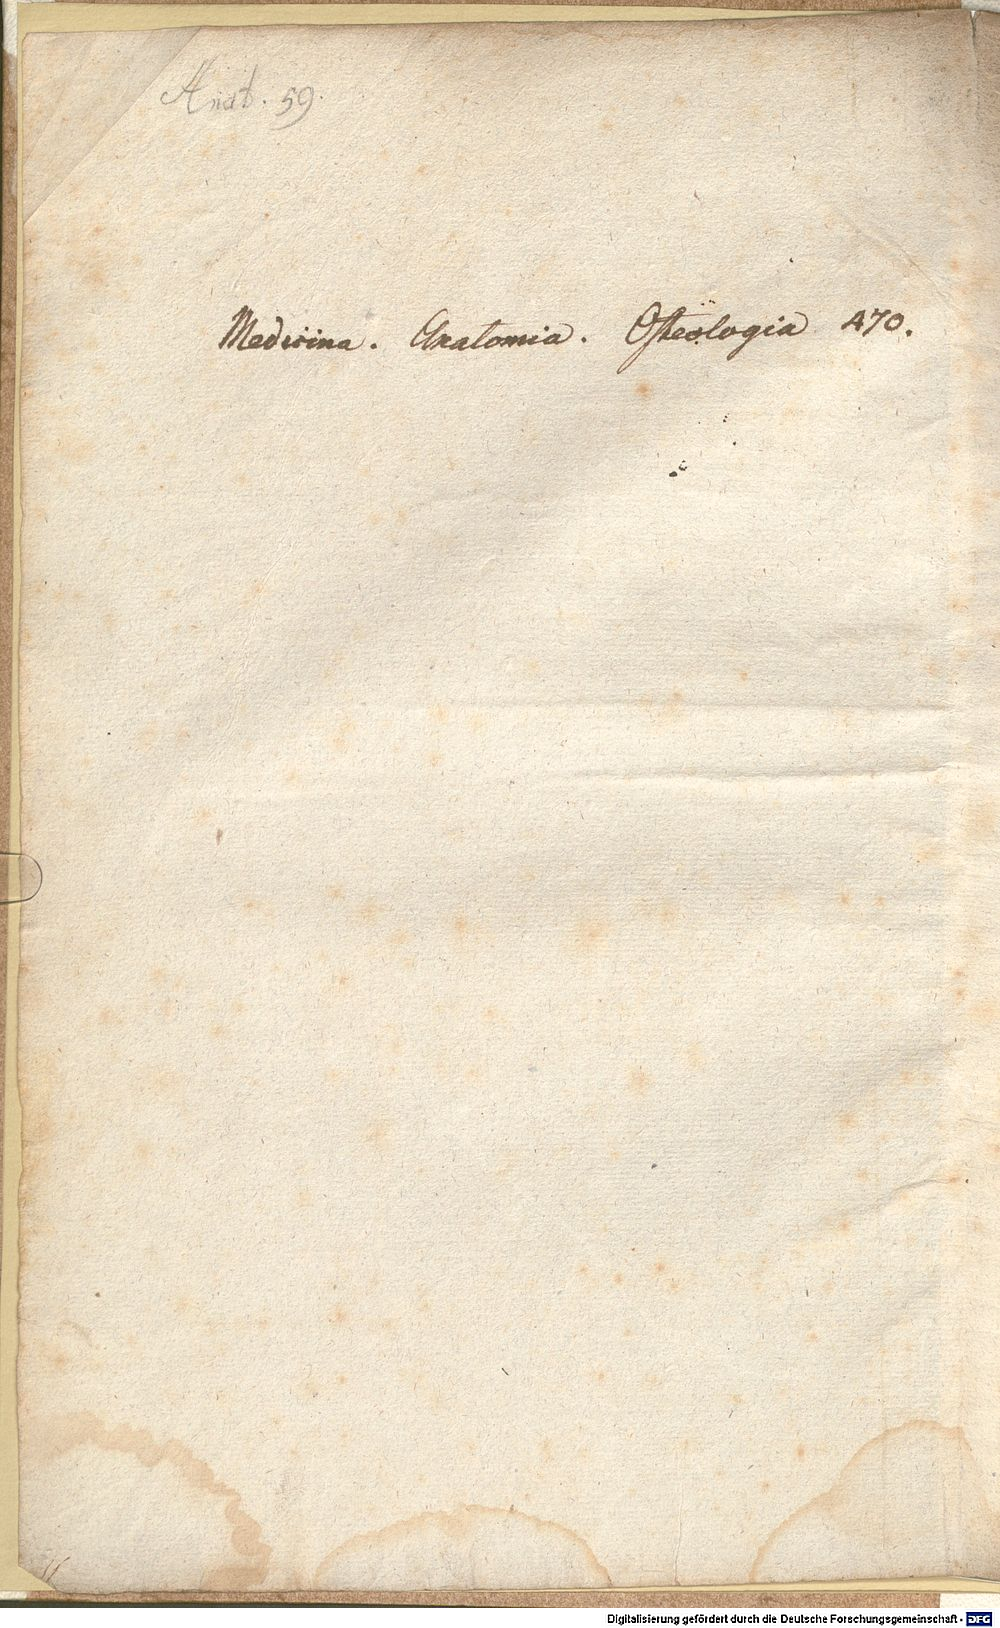 Anat. 59.
Medicina. Anatomia. Osteologia 470.
Digitalisierung gefördert durch die Deutsche Forschungsgemeinschaft - DFG